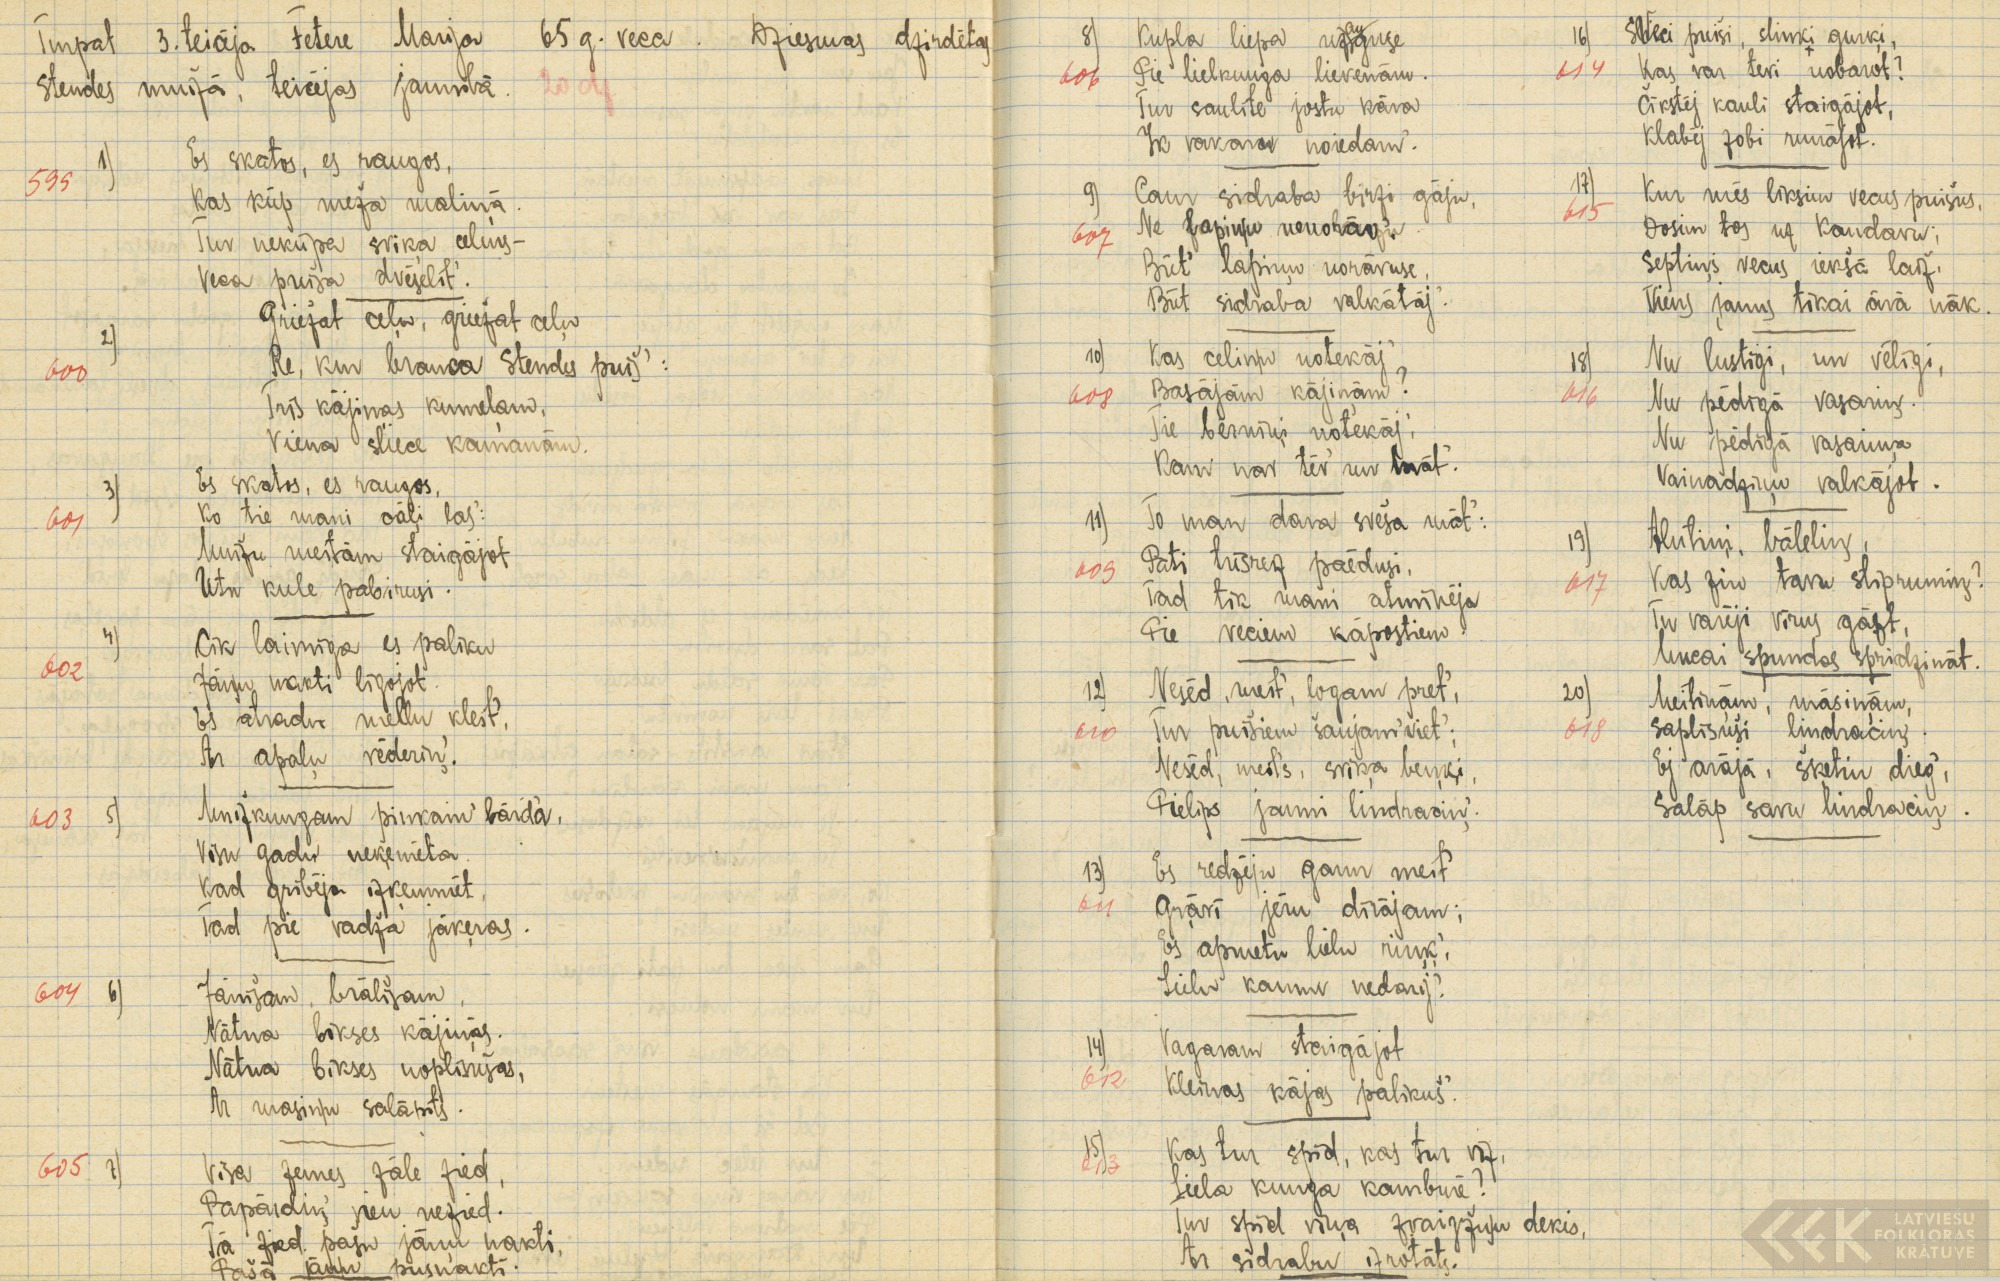 Turpat 3. teicēja Fetere Marija 65 g. veca. Dziesmas dzirdētas
Stendes muižā, teicējas jaunībā.
1)
599
Es skatos, es raugos,
Kas kūp meža maliņā.
Tur nekūpa svika celms –
Veca puiša dvēselīt'.
2)
600
Griežat ceļu, griežat ceļu
Re, kur brauca Stendes puiš':
Trīs kājiņas kumeļam,
Viena sliece kamanām.
3)
601
Es skatos, es raugos,
Ko tie mani cāļi las':
Muižu meitām staigājot
Utu kule pabirusi.
4)
602
Cik laimīga es paliku
Jāņu nakti līgojot.
Es atradu mellu klēit',
Ar apaļu vēderiņ'.
603 5)
Muižkungam pinkain' bārda,
Visu gadu neķemēta.
Kad gribēja izķemmēt,
Tad pie vadža jāķeras.
604 6)
Jānīšam, brālīšam,
Nātna bikses kājiņās.
Nātna bikses noplīsušas,
Ar masiņu salāpīts.
605 7)
Visa zemes zāle zied,
Papārdiņ' vien nezied.
Tā zied pašu jāņu nakti,
Pašā jāņu pusnakti.
8)
606
Kupla liepa uzaguse
Pie lielkunga lievenām.
Tur saulīte jostu kāra
Ik vakaru noiedam'.
9)
607
Caur sidraba birzi gāju,
Ne lapiņu nenorāvu.
Būt' lapiņu norāvuse,
Būt sidraba valkātāj'.
10)
608
Kas celiņu notekāj'
Basājām kājiņām?
Tie bērniņi notekāj',
Kam nav tēv' un māt'.
11)
609
To man dara sveša māt':
Pati trīsreiz paēdusi,
Tad tik mani atminēja
Pie veciem kāpostiem.
12)
610
Nesēd, meit', logam pret',
Tur puišiem šaujam' viet';
Nesēd, meits, svika benķi,
Pielips jauni lindraciņ'.
13)
611
Es redzēju gann meit'
Grāvī jēru dīrājam;
Es apmetu lielu riņķ',
Lielu kaunu nedarij'.
14)
612
Vagaram staigājot
Kleinas kājas palikuš'.
15)
613
Kas tur spīd, kas tur viz,
Liela kunga kambarē?
Tur spīd viņa zvaigžņu deķis,
Ar sidrabu izrotāts.
16)
614
Veci puiši, slinki gurķi,
Kas var tevi nobarot?
Čīkstēj kauli staigājot,
Klabēj zobi runājot.
17)
615
Kur mēs liksim vecus puišus,
Dosim tos uz Kandavu;
Septiņi vecus iekšā laiž,
Viens jauns tikai ārā nāk.
18)
616
Nu lustīgi, un vēlīgi,
Nu pēdīgā vasariņ.
Nu pēdīgā vasariņa
Vainadziņu valkājot.
19)
617
Alutiņ, bāleliņ,
Kas zin tavu stiprumiņ?
Tu varēji vīrus gāzt,
Mucai spundes spridzināt.
20)
618
Meitiņām, māsiņām,
Saplīsuši lindraciņ.
Ej arājā, šķetin dieg',
Salāp savu lindraciņ.
LATVIEŠU
FOLKLORAS
KRĀTUVE